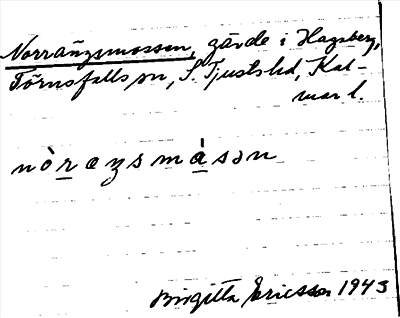 Norrängsmossen, gärde i Hagsberg,
Törnsfalls sn, S. Tjusts hd, Kal-
mar l.
nòrazsmàsən
Birgitta Ericsson 1943